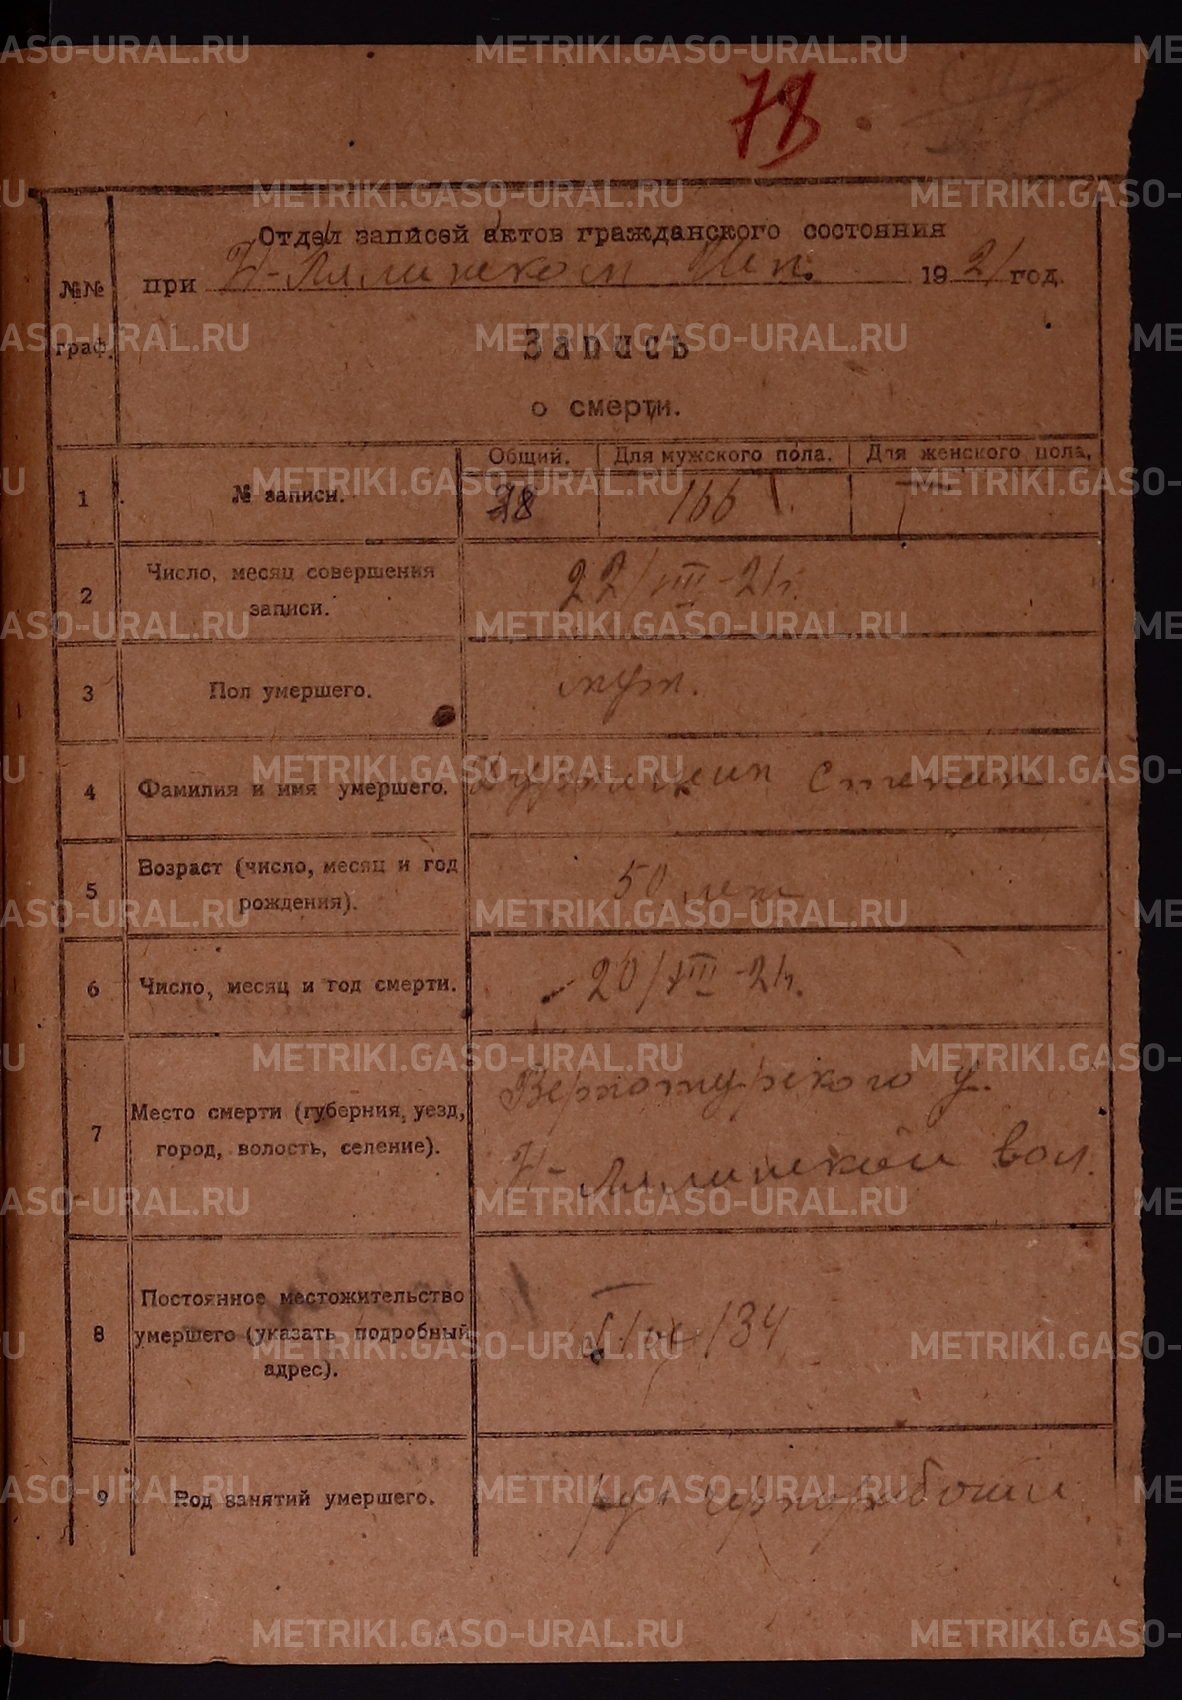 78.
Отдел записей актов гражданского состояния
при Н-Лялинском Исп. 1921 год.
№№ граф.
Запись
о смерти.
Общий. Для мужского пола. Для женского пола.
1 № записи. 78 166
2 Число, месяц совершения записи. 22/VIII-21г.
3 Пол умершего. муж.
4 Фамилия и имя умершего. Степан
5 Возраст (число, месяц и год рождения). 50 лет
6 Число, месяц и год смерти. 20/VIII-21г.
7 Место смерти (губерния, уезд, город, волость, селение). Верхотурского у.
Н-Лялинской вол.
8 Постоянное местожительство умершего (указать подробный адрес). 134
9 Род занятий умершего. чернорабочий
METRIKI.GASO-URAL.RU